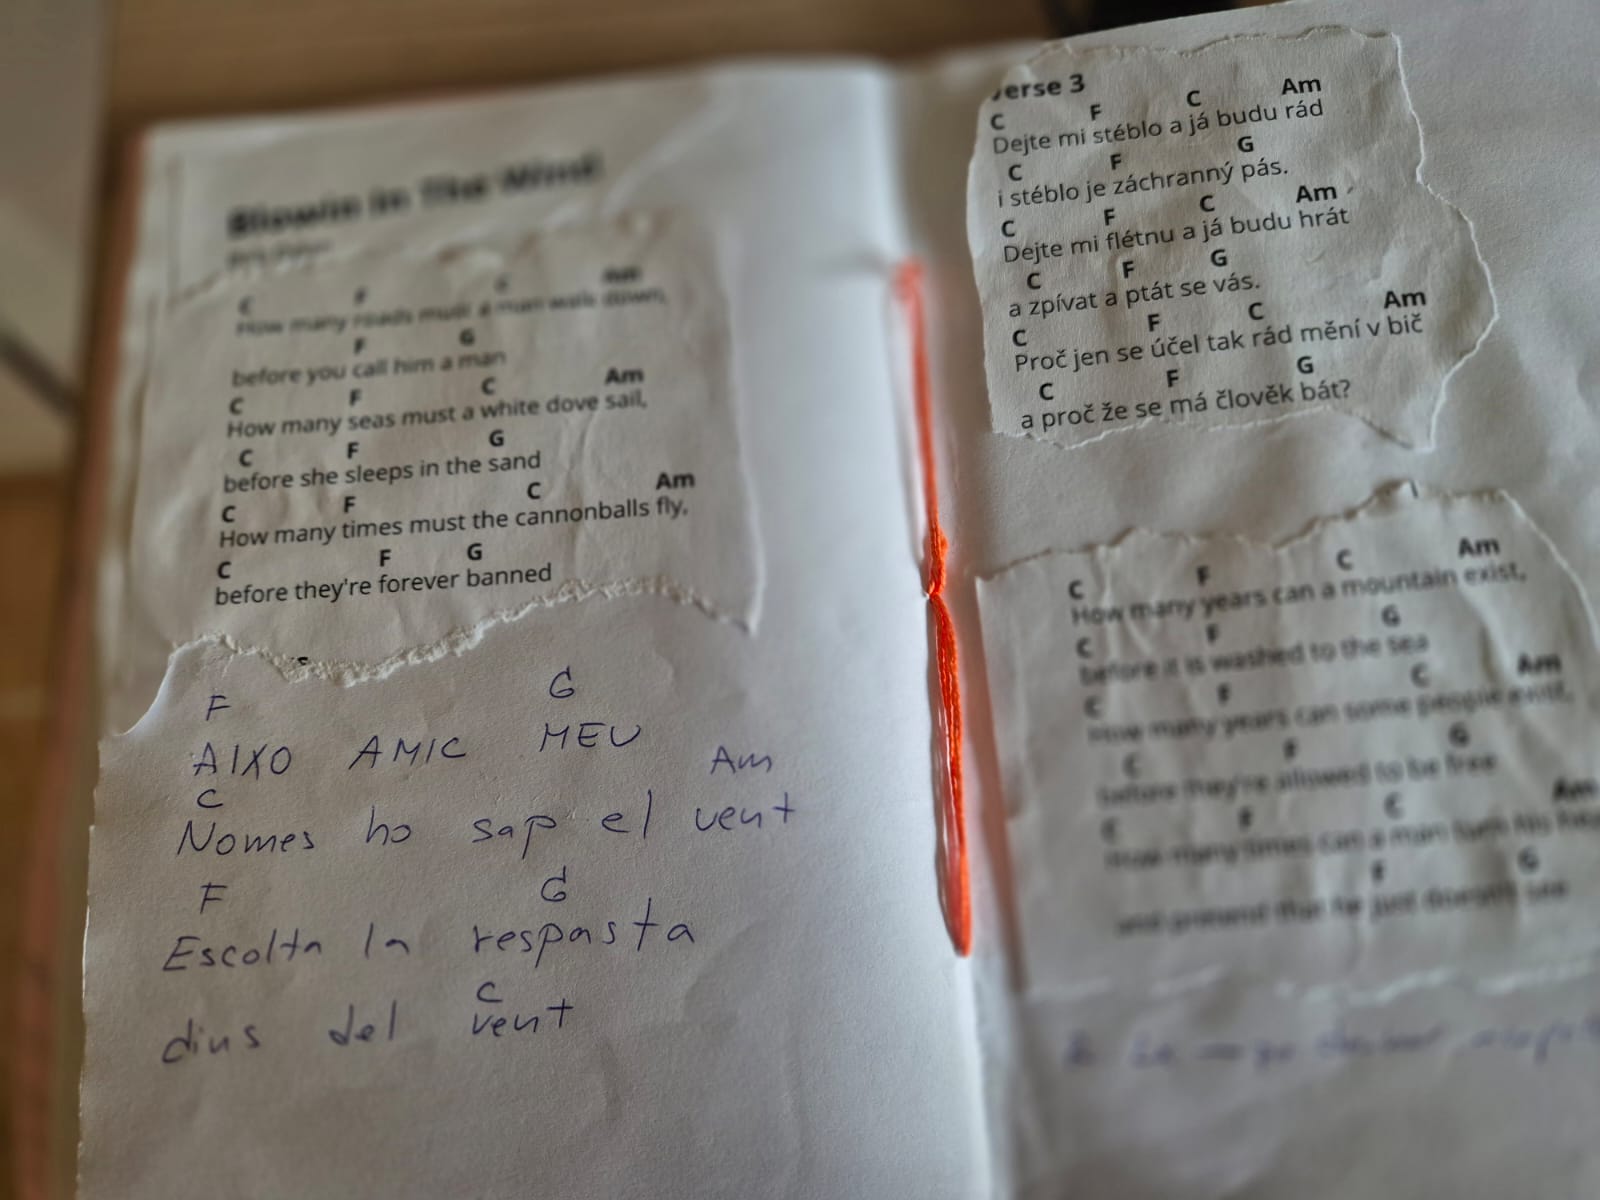 Blowin in The Wind
C F C Am
How many roads must a man walk down,
F G
before you call him a man
C F C Am
How many seas must a white dove sail,
C F G
before she sleeps in the sand
C F C Am
How many times must the cannonballs fly,
C F G
before they're forever banned
F G
AIXO AMIC MEU
C Am
Nomes ho sap el vent
F G
Escolta la resposta
C
dins del vent
erse 3
C F C Am
Dejte mi stéblo a já budu rád
C F G
i stéblo je záchranný pás.
C F C Am
Dejte mi flétnu a já budu hrát
C F G
a zpívat a ptát se vás.
C F C Am
Proč jen se účel tak rád mění v bič
C F G
a proč že se má člověk bát?
C F C Am
How many years can a mountain exist,
C F G
before it is washed to the sea
C F C Am
How many years can some people exist,
C F G
before they're allowed to be free
C F C Am
How many times can a man turn his
F G
and pretend that he just doesn't see